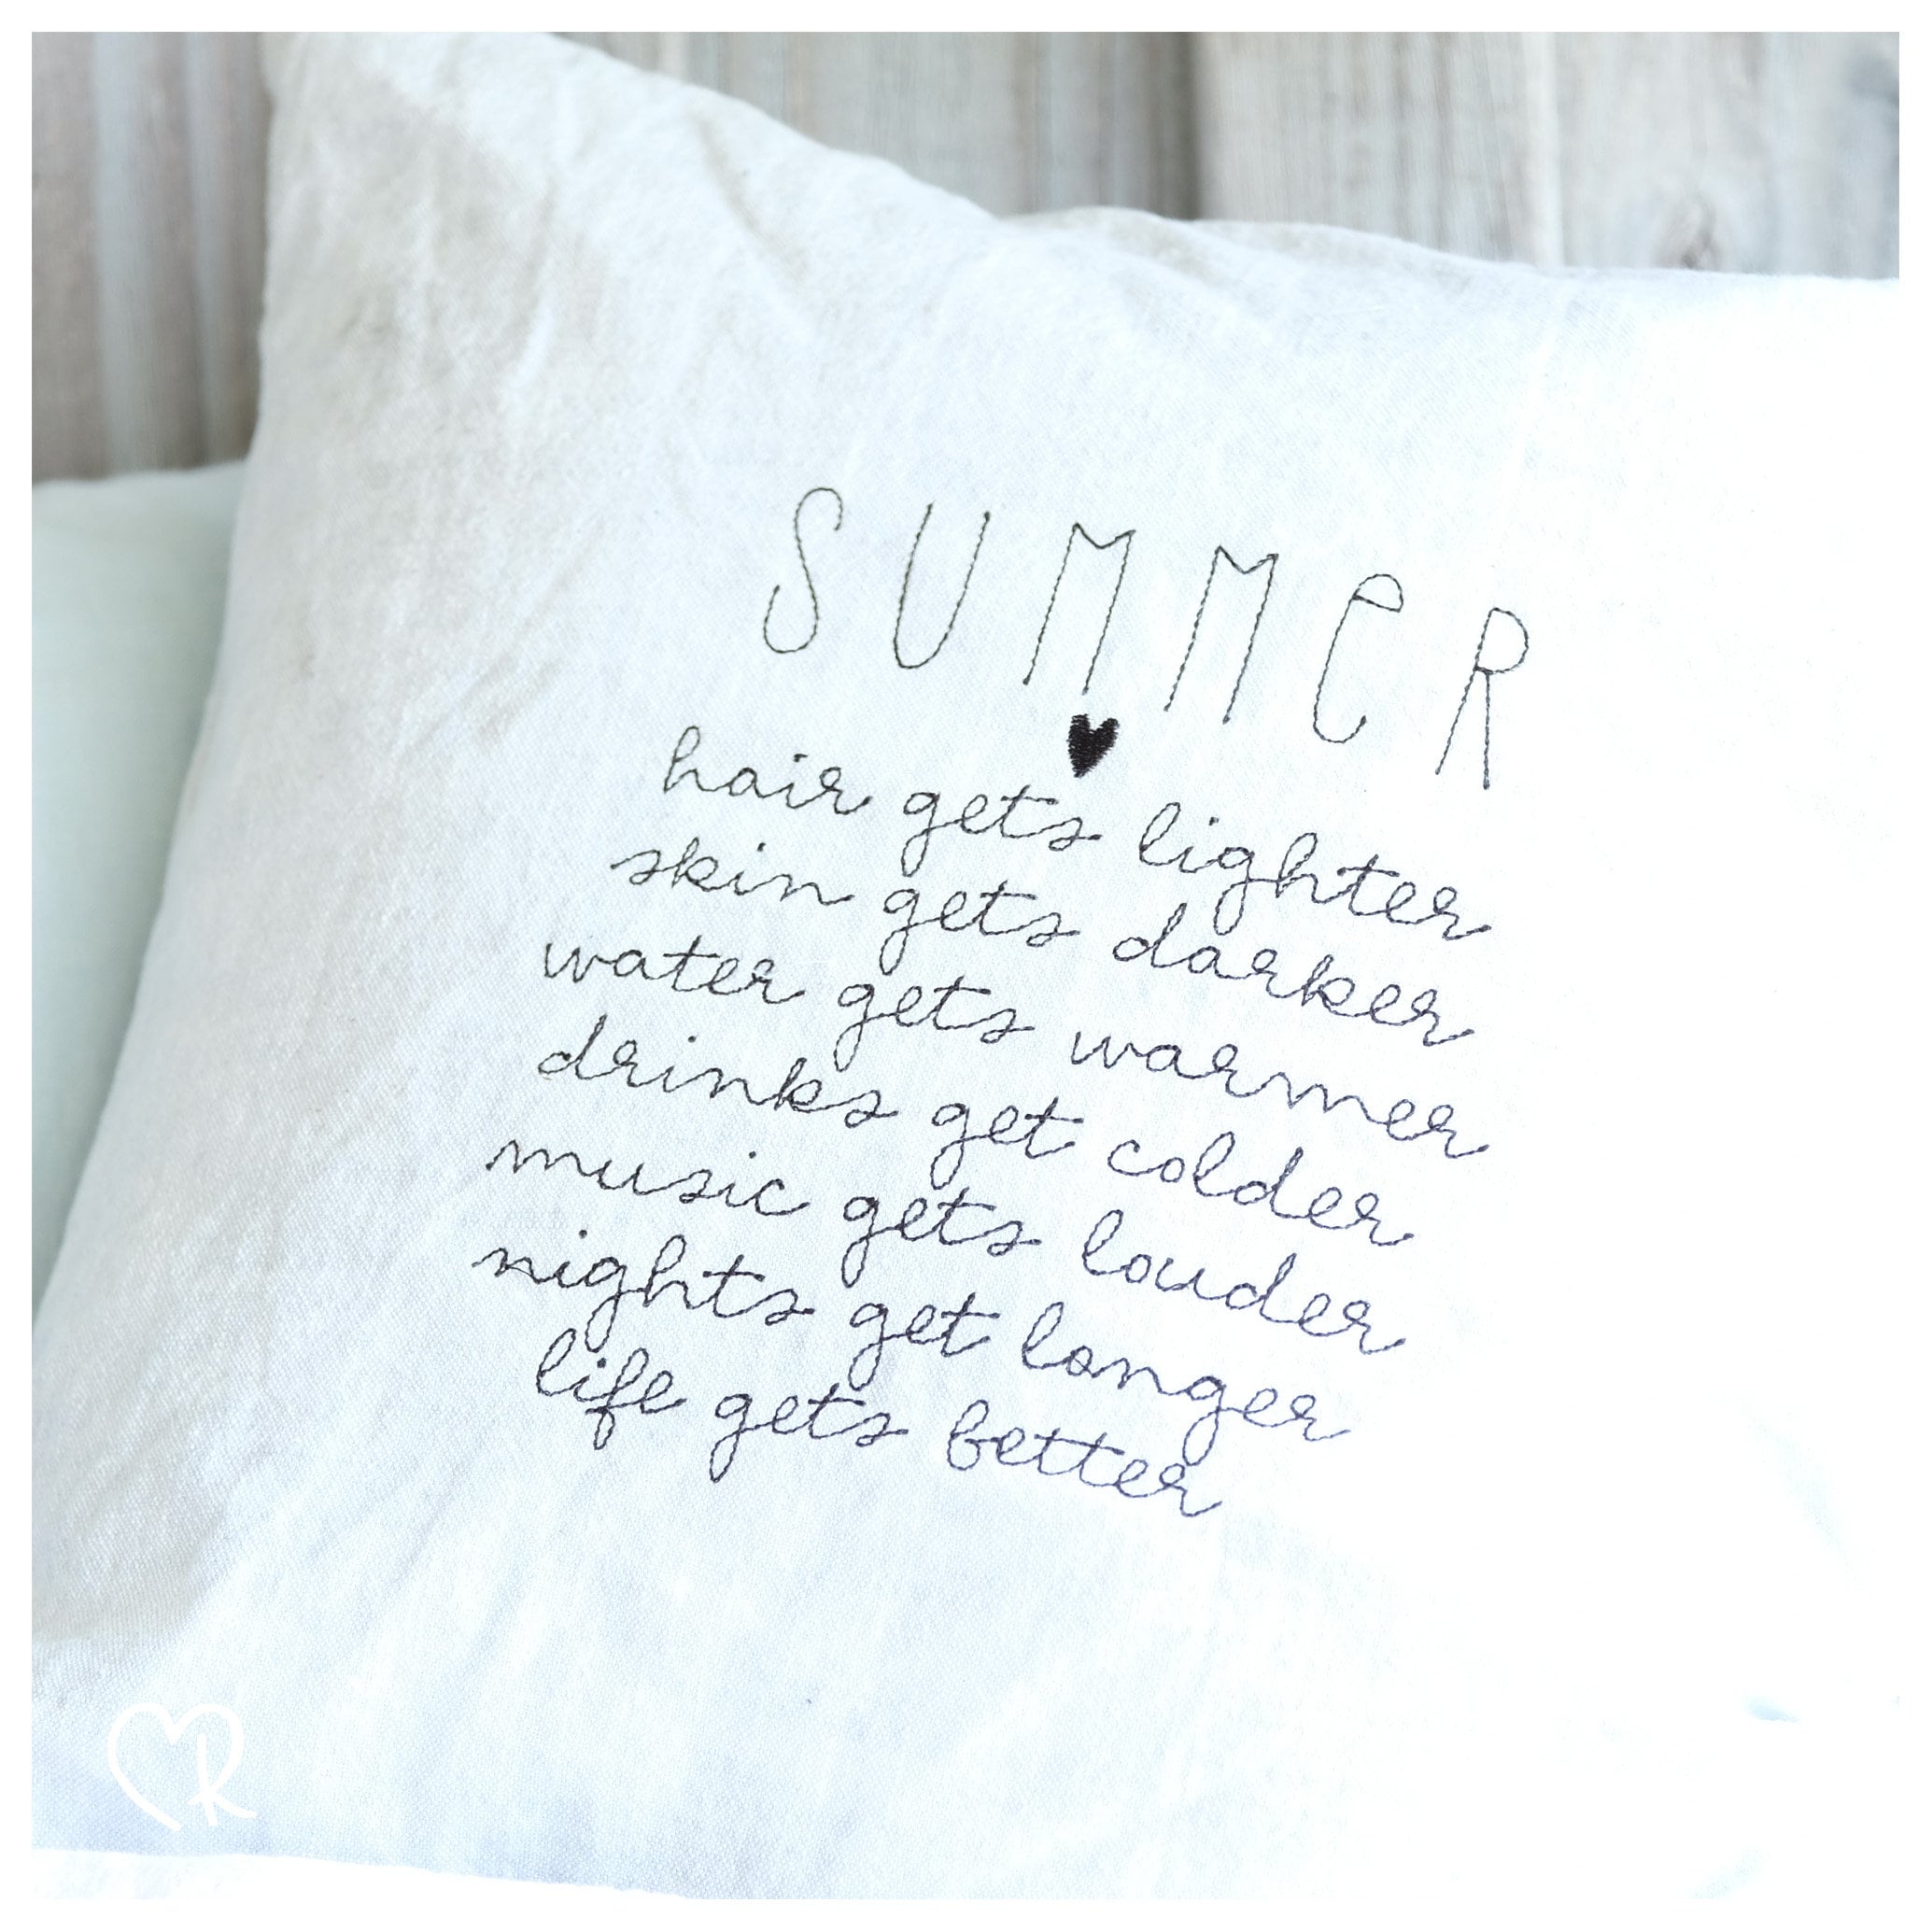 SUMMeR
hair gets lighter
skin gets darker
water gets warmer
drinks get colder
music gets louder
nights get longer
life gets better
R